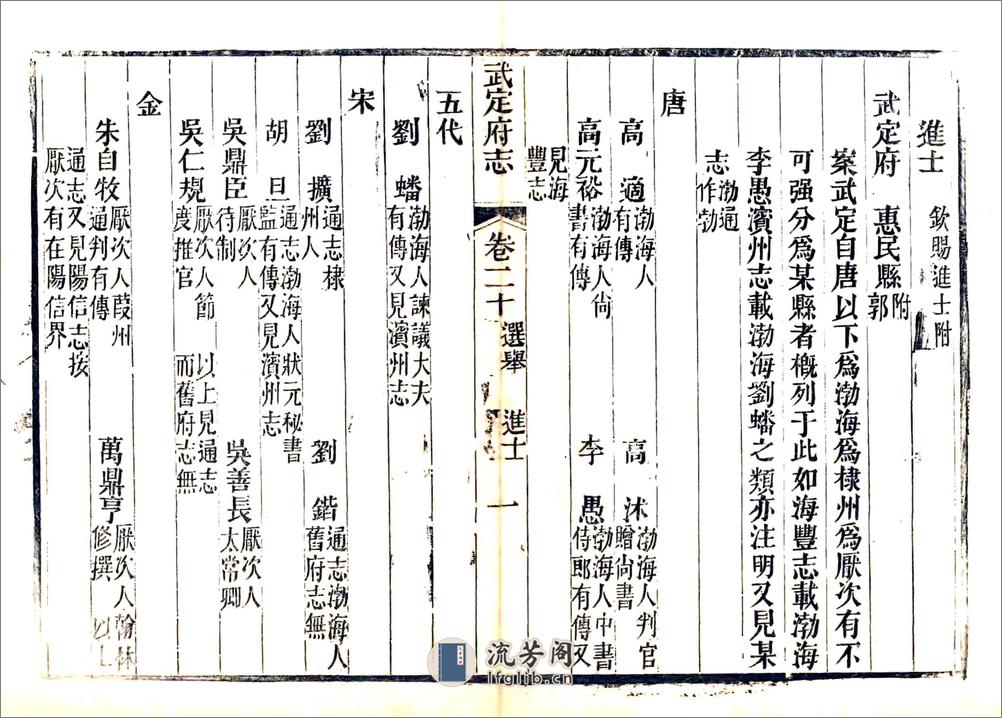 進士　欽賜進士附
武定府　惠民縣附郭
案武定自唐以下爲渤海爲棣州爲厭次有不
可强分爲某縣者概列于此如海豐志載渤海
李愚濱州志載渤海劉蟠之類亦注明又見某
志渤通志作勃
唐
高適渤海人有傳　高沐渤海人判官贈尙書
高元裕渤海人尙書有傳　李愚渤海人中書侍郎有傳又
見海豐志
武定府志　卷二十　選舉　進士　一
五代
劉蟠渤海人諫議大夫有傳又見濱州志
宋
劉擴通志棣州人　劉鍇通志渤海人舊府志無
胡旦通志渤海人狀元秘書監有傳又見濱州志
吳鼎臣厭次人待制　吳善長厭次人太常卿
吳仁規厭次人節度推官　以上見通志而舊府志無
金
朱自牧厭次人葭州通判有傳　萬鼎亨厭次人翰林修撰　以上
通志又見陽信志按厭次有在陽信界
流芳阁
lfglib.cn